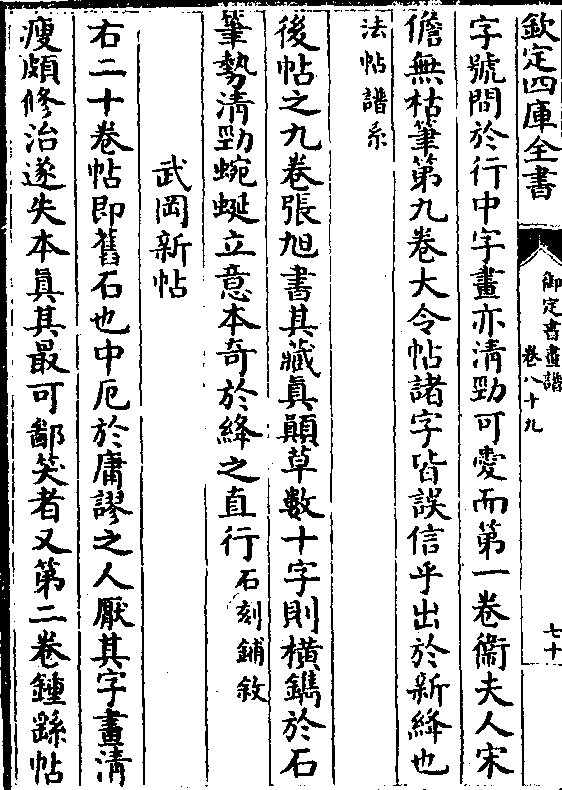 欽定四庫全書
御定書畫譜
卷八十九
七十
字號間於行中字畫亦清勁可愛而第一卷衛夫人宋
儋無枯筆第九卷大令帖諸字皆誤信乎出於新絳也
法帖譜系
後帖之九卷張旭書其藏真顛草數十字則橫鐫於石
筆勢清勁蜿蜒立意本奇於絳之直行石刻鋪敘
武岡新帖
右二十卷帖即舊石也中厄於庸謬之人厭其字畫清
瘦頗修治遂失本真其最可鄙笑者又第二卷鍾繇帖